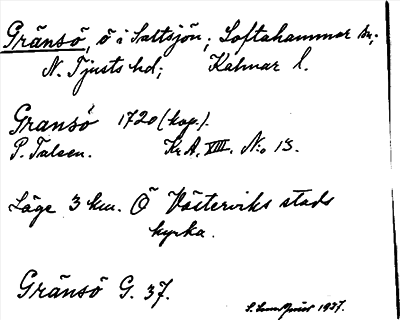 Gränsö, ö i Saltsjön; Loftahammar sn;
N. Tjusts hd; Kalmar l.
Gransö 1720 (kop.).
P. Talsen. Kr.A. XIII. No 13.
Läge 3 km. Ö Västerviks stads
kyrka.
Gränsö G. 37.
1937.